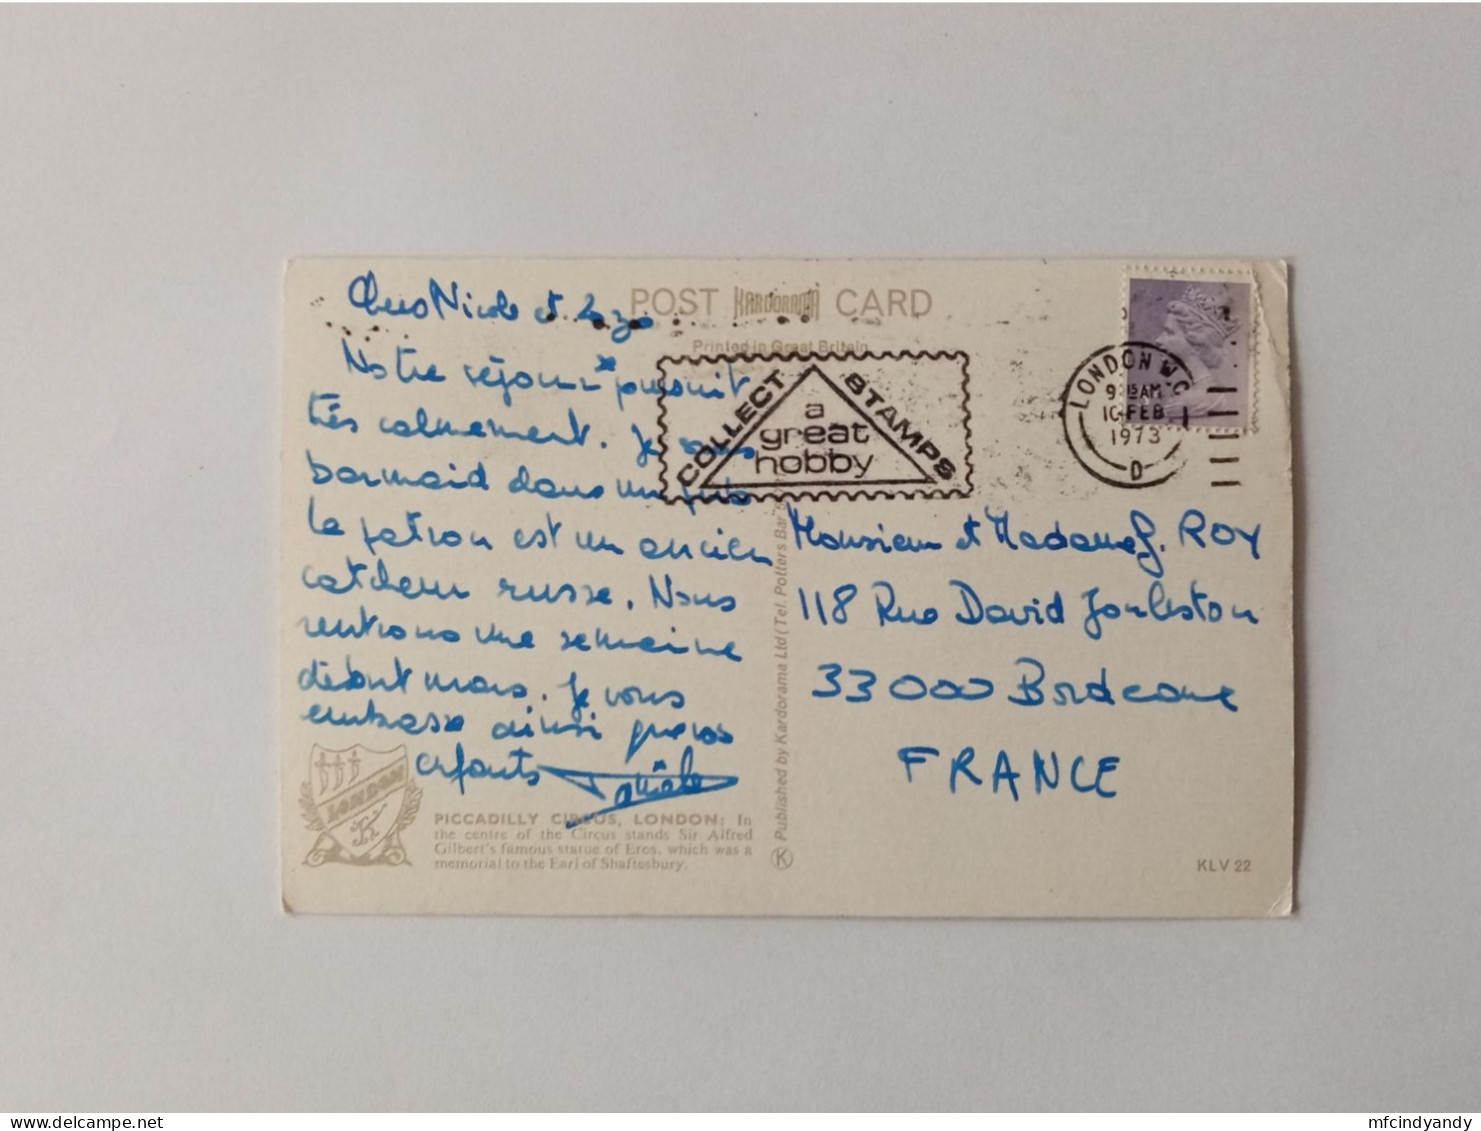 POST KARDORAMA CARD
Printed in Great Britain
Chers Nicole et
Notre séjour poursuit
très calmement. Je suis
barmaid dans un pub
le patron est un ancien
catcheur russe. Nous
rentrons une semaine
début mars. Je vous
embrasse ainsi que vos
enfants
COLLECT STAMPS
a
great
hobby
LONDON W.C.
9.15 AM
10 FEB
1973
D
Monsieur et Madame J. ROY
118 Rue David Johnston
33000 Bordeaux
FRANCE
Published by Kardorama Ltd (Tel. Potters Bar
K
LONDON
K
PICCADILLY CIRCUS, LONDON: In
the centre of the Circus stands Sir Alfred
Gilbert's famous statue of Eros, which was a
memorial to the Earl of Shaftesbury.
KLV 22
mfcindyandy